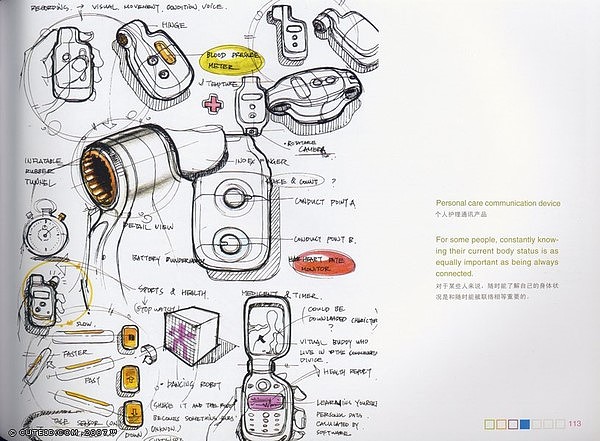 RECORDING. → VISUAL, MOVEMENT, CONDITION, VOICE.
HINGE
BLOOD PRESSURE
METER
ROTATABLE
CAMERA
INFLATABLE
RUBBER
TUNNEL
INDEX FINGER
& COUNT ?
CONDUCT POINT A
DETAIL VIEW
CONDUCT POINT B.
HEART RATE
MONITOR
BATTERY
SPORTS & HEALTH.
(STOP WATCH)
& TIMER.
SLOW.
FASTER
FAST
DOWN
(COULD BE
DOWNLOADED CHARACTER
?
VIRTUAL BUDDY WHO
LIVE IN THE
DEVICE.
HEALTH REPORT
• DANCING ROBOT
(SHAKE IT AND THE
BECOMES SOMETHING
UNKNOWN)
LEARNING YOURSELF
PERSONAL DATA.
CALCULATED BY
SOFTWARE.
Personal care communication device
个人护理通讯产品
For some people, constantly know-
ing their current body status is as
equally important as being always
connected.
对于某些人来说，随时能了解自己的身体状
况是和随时能被联络相等重要的。
113